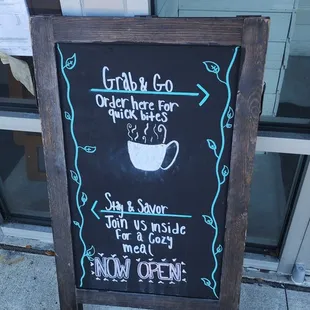 Grab & Go
Order here for
quick bites
Stay & Savor
Join us inside
For a Cozy
meal
NOW OPEN